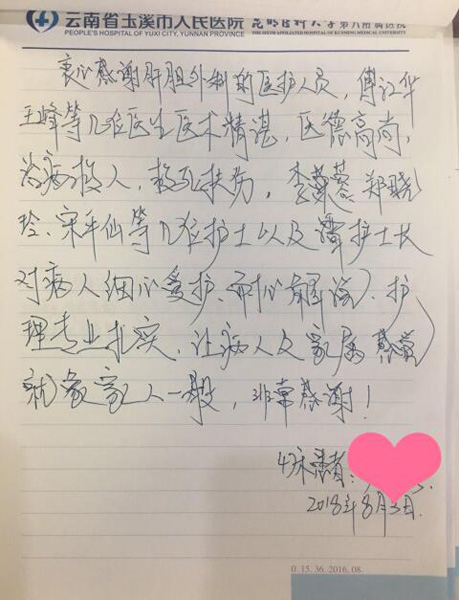 云南省玉溪市人民医院 昆明医科大学第六附属医院
PEOPLE'S HOSPITAL OF YUXI CITY, YUNNAN PROVINCE THE SIXTH AFFILIATED HOSPITAL OF KUNMING MEDICAL UNIVERSITY
衷心感谢肝胆外科的医护人员，傅江华
王峰等几位医生医术精湛，医德高尚，
治病救人，救死扶伤，李蕊 郑晓
玲、宋平仙等几位护士以及谭护士长
对病人细心爱护、耐心解说、护
理专业扎实，让病人及家属感觉
就象家人一般，非常感谢！
47床患者：
2018年8月3日.
0.15.36.2016.08